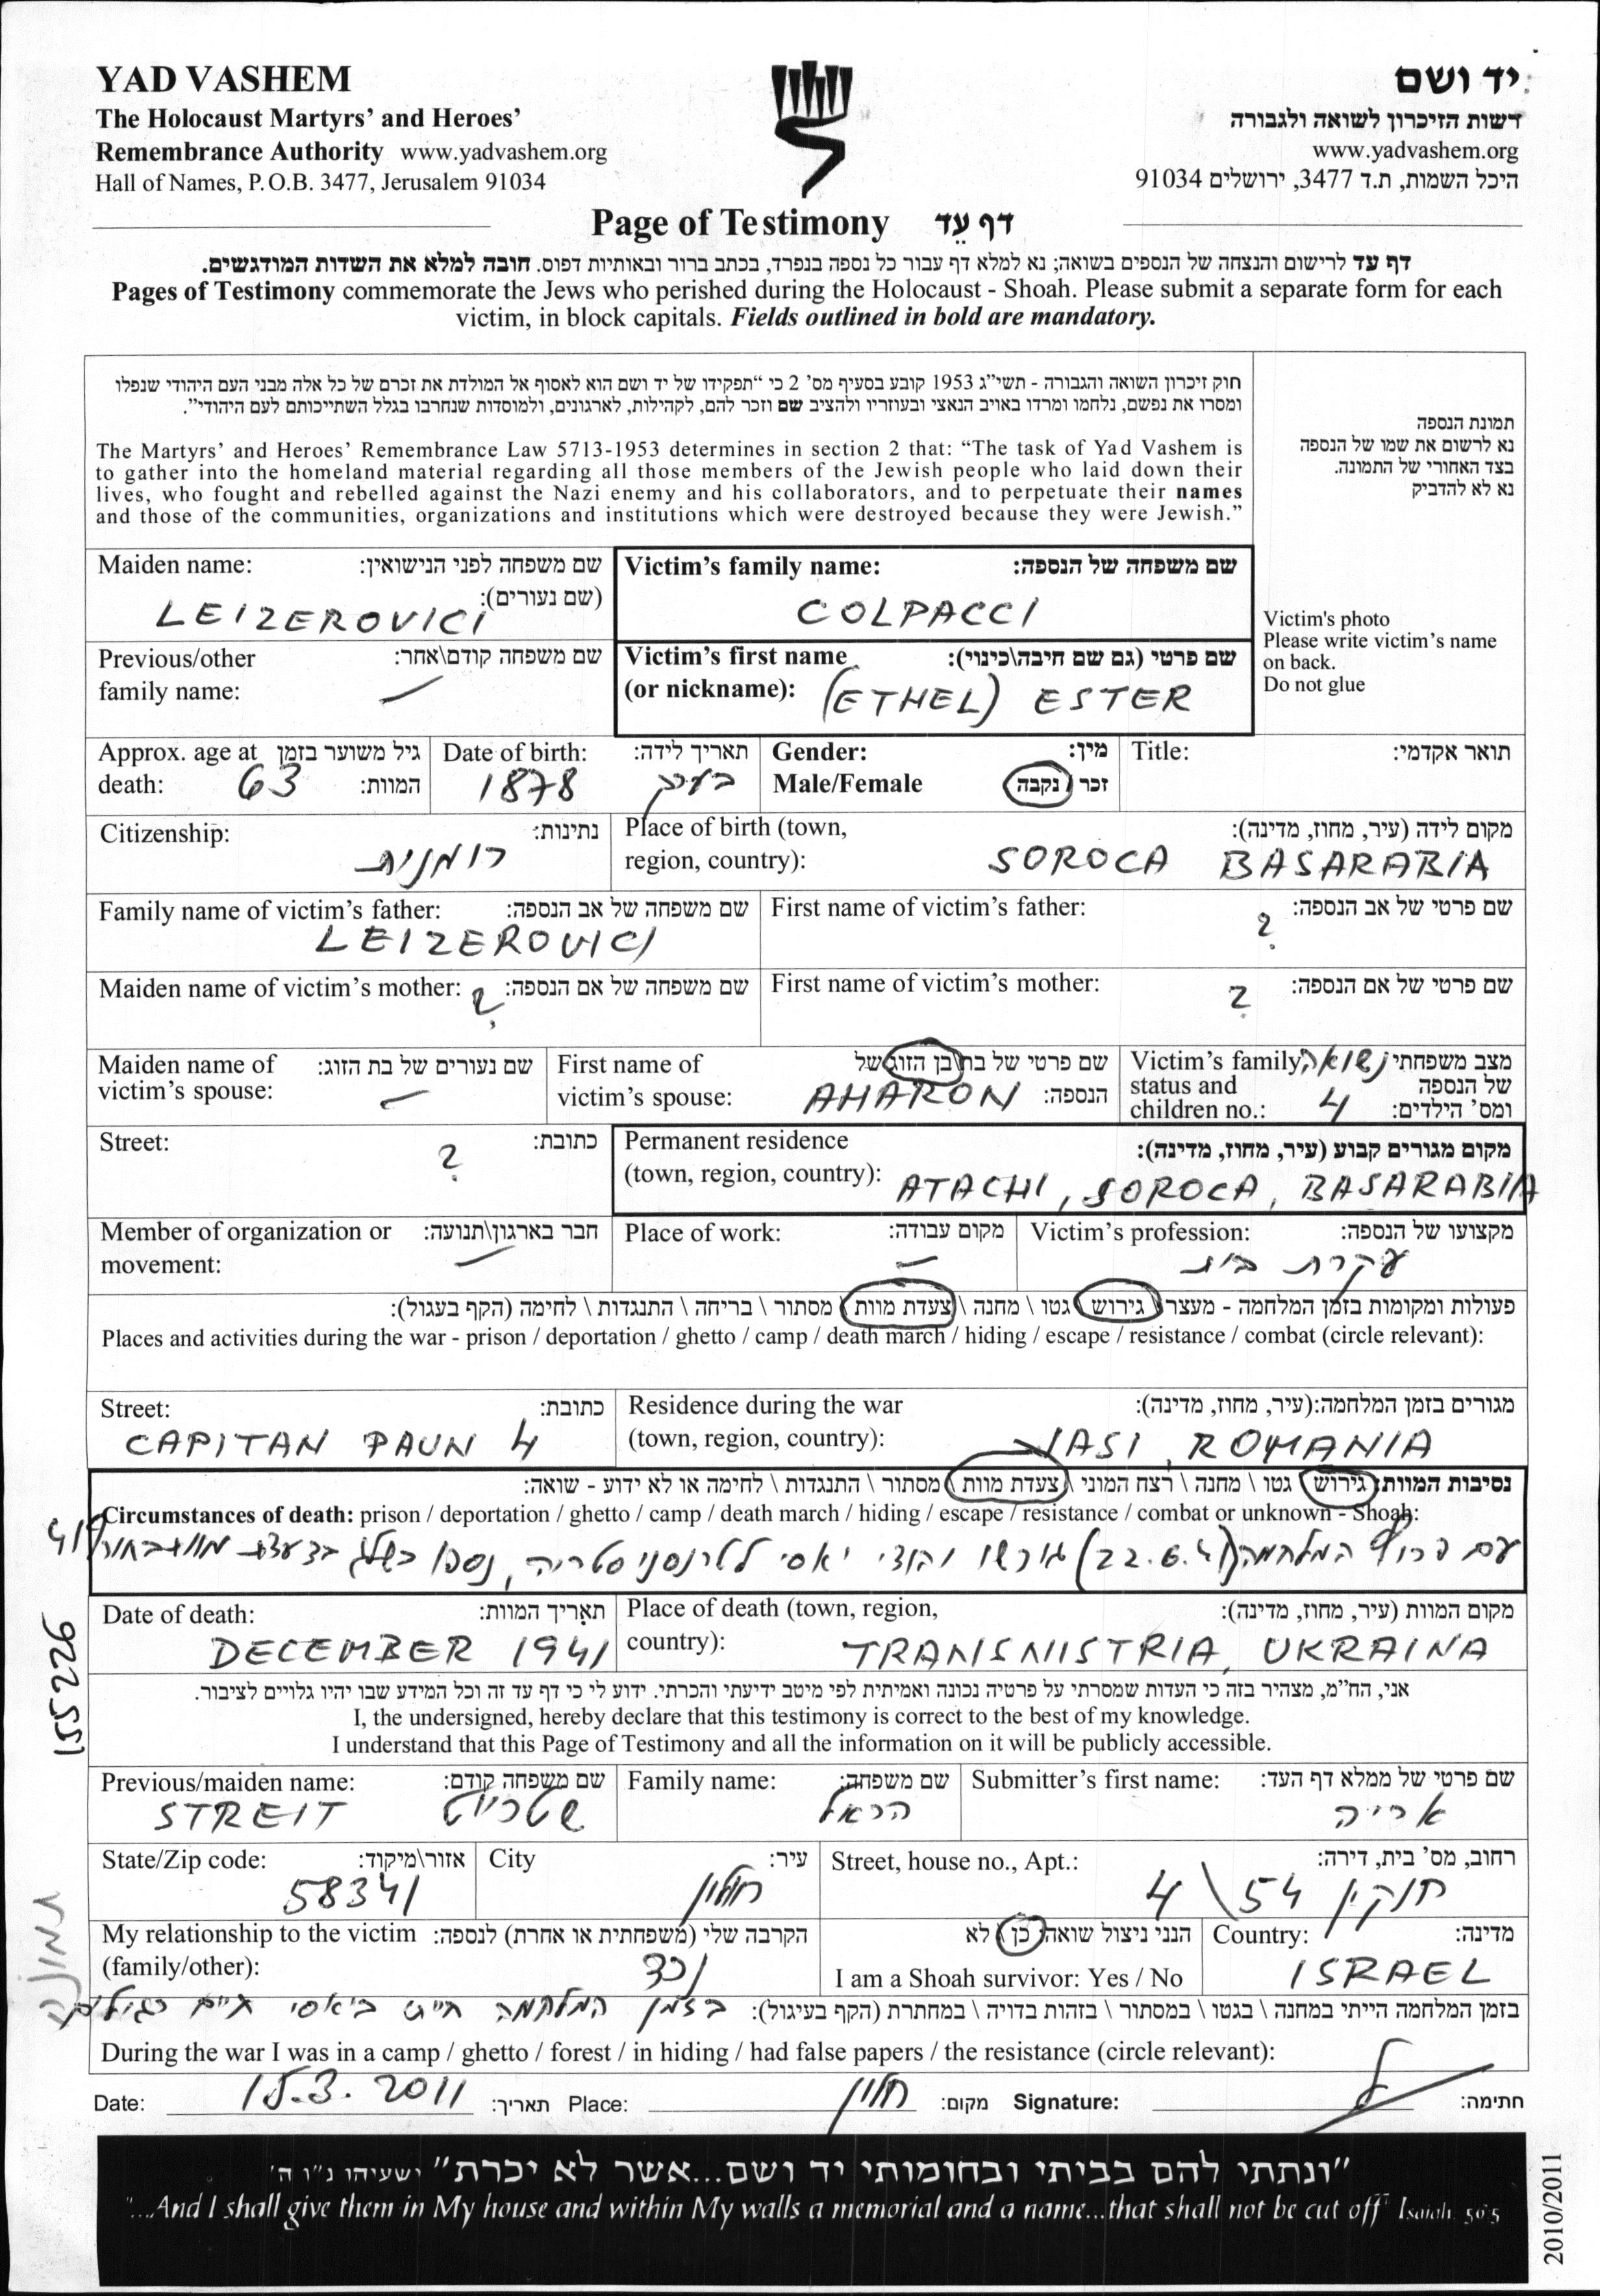 YAD VASHEM
The Holocaust Martyrs' and Heroes'
Remembrance Authority www.yadvashem.org
Hall of Names, P.O.B. 3477, Jerusalem 91034
יד ושם
רשות הזיכרון לשואה ולגבורה
www.yadvashem.org
היכל השמות, ת.ד 3477, ירושלים 91034
Page of Testimony דף עֵד
דף עד לרישום והנצחה של הנספים בשואה; נא למלא דף עבור כל נספה בנפרד, בכתב ברור ובאותיות דפוס. חובה למלא את השדות המודגשים.
Pages of Testimony commemorate the Jews who perished during the Holocaust - Shoah. Please submit a separate form for each
victim, in block capitals. Fields outlined in bold are mandatory.
חוק זיכרון השואה והגבורה - תשי"ג 1953 קובע בסעיף מס' 2 כי "תפקידו של יד ושם הוא לאסוף אל המולדת את זכרם של כל אלה מבני העם היהודי שנפלו
ומסרו את נפשם, נלחמו ומרדו באויב הנאצי ובעוזריו ולהציב שם וזכר להם, לקהילות, לארגונים, ולמוסדות שנחרבו בגלל השתייכותם לעם היהודי".
The Martyrs' and Heroes' Remembrance Law 5713-1953 determines in section 2 that: "The task of Yad Vashem is
to gather into the homeland material regarding all those members of the Jewish people who laid down their
lives, who fought and rebelled against the Nazi enemy and his collaborators, and to perpetuate their names
and those of the communities, organizations and institutions which were destroyed because they were Jewish."
תמונת הנספה
נא לרשום את שמו של הנספה
בצד האחורי של התמונה.
נא לא להדביק
Victim's photo
Please write victim's name
on back.
Do not glue
Maiden name: שם משפחה לפני הנישואין:
(שם נעורים):
LEIZEROVICI
Victim's family name: שם משפחה של הנספה:
COLPACCI
Previous/other שם משפחה קודם\אחר:
family name: —
Victim's first name שם פרטי (גם שם חיבה\כינוי):
(or nickname): (ETHEL) ESTER
Approx. age at גיל משוער בזמן
death: 63 המוות:
Date of birth: תאריך לידה:
1878 בערך
Gender: מין:
Male/Female זכר / נקבה
Title: תואר אקדמי:
Citizenship: נתינות:
רומנית
Place of birth (town, מקום לידה (עיר, מחוז, מדינה):
region, country): SOROCA BASARABIA
Family name of victim's father: שם משפחה של אב הנספה:
LEIZEROVICI
First name of victim's father: שם פרטי של אב הנספה:
?
Maiden name of victim's mother: ? שם משפחה של אם הנספה:
First name of victim's mother: שם פרטי של אם הנספה:
?
Maiden name of שם נעורים של בת הזוג:
victim's spouse: —
First name of שם פרטי של בת\בן הזוג של
victim's spouse: AHARON הנספה:
Victim's family נשואה מצב משפחתי
status and של הנספה
children no.: 4 ומס' הילדים:
Street: כתובת:
?
Permanent residence מקום מגורים קבוע (עיר, מחוז, מדינה):
(town, region, country): ATACHI, SOROCA, BASARABIA
Member of organization or חבר בארגון\תנועה:
movement: —
Place of work: מקום עבודה:
—
Victim's profession: מקצועו של הנספה:
עקרת בית
פעולות ומקומות בזמן המלחמה - מעצר \ גירוש \ גטו \ מחנה \ צעדת מוות \ מסתור \ בריחה \ התנגדות \ לחימה (הקף בעגול):
Places and activities during the war - prison / deportation / ghetto / camp / death march / hiding / escape / resistance / combat (circle relevant):
Street: כתובת:
CAPITAN PAUN 4
Residence during the war מגורים בזמן המלחמה:(עיר, מחוז, מדינה):
(town, region, country): IASI, ROMANIA
נסיבות המוות: גירוש \ גטו \ מחנה \ רצח המוני \ צעדת מוות \ מסתור \ התנגדות \ לחימה או לא ידוע - שואה:
Circumstances of death: prison / deportation / ghetto / camp / death march / hiding / escape / resistance / combat or unknown - Shoah:
עם פרוץ המלחמה (22.6.41) גורשו יהודי יאסי לטרנסניסטריה, נספו בשלג בצעדת מוות בחורף 41
Date of death: תאריך המוות:
DECEMBER 1941
Place of death (town, region, מקום המוות (עיר, מחוז, מדינה):
country): TRANSNISTRIA, UKRAINA
אני, הח"מ, מצהיר בזה כי העדות שמסרתי על פרטיה נכונה ואמיתית לפי מיטב ידיעתי והכרתי. ידוע לי כי דף עד זה וכל המידע שבו יהיו גלויים לציבור.
I, the undersigned, hereby declare that this testimony is correct to the best of my knowledge.
I understand that this Page of Testimony and all the information on it will be publicly accessible.
Previous/maiden name: שם משפחה קודם:
STREIT שטרייט
Family name: שם משפחה:
הראל
Submitter's first name: שם פרטי של ממלא דף העד:
אריה
State/Zip code: אזור\מיקוד:
58341
City עיר:
חולון
Street, house no., Apt.: רחוב, מס' בית, דירה:
חנקין 54 \ 4
My relationship to the victim הקרבה שלי (משפחתית או אחרת) לנספה:
(family/other): נכד
הנני ניצול שואה כן \ לא
I am a Shoah survivor: Yes / No
Country: מדינה:
ISRAEL
בזמן המלחמה הייתי במחנה \ בגטו \ במסתור \ בזהות בדויה \ במחתרת (הקף בעיגול): בזמן המלחמה חייתי ביאסי חיים רגילים
During the war I was in a camp / ghetto / forest / in hiding / had false papers / the resistance (circle relevant):
Date: 15.3.2011 תאריך: Place: חולון מקום: Signature: חתימה:
"ונתתי להם בביתי ובחומותי יד ושם...אשר לא יכרת" ישעיהו נ"ו ה'
"...And I shall give them in My house and within My walls a memorial and a name...that shall not be cut off" Isaiah, 56:5
155226
תמונה
2010/2011